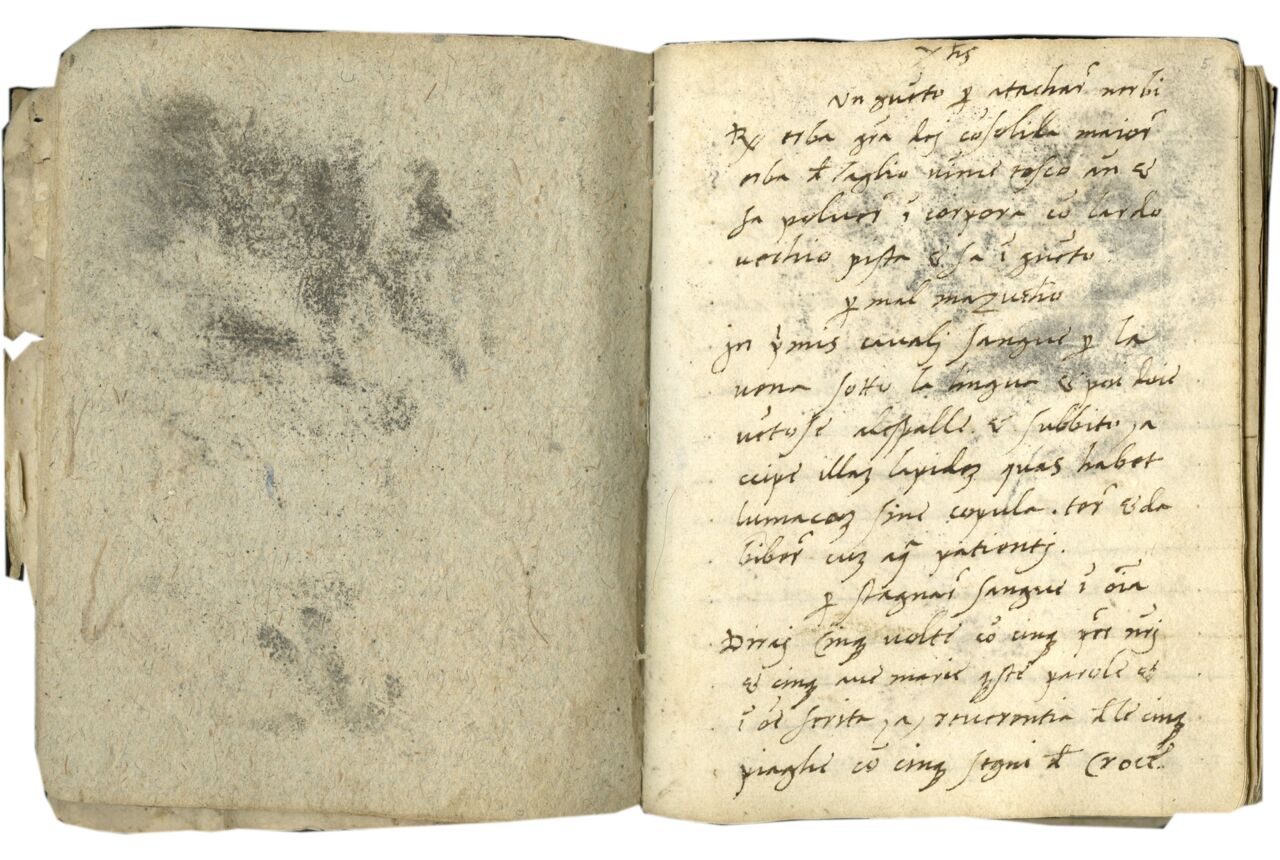 yhs
5
Unguẽto p atachar̃ nerbi
Rx erba grã dej cõsolida maior̃
erba d̃ taglio uime tosco añ &
fa poluer̃ ĩ corpora cõ lardo
uechio pista & fa ĩguẽto
p mal mazucho
jn p̃mis cavalj sangue p la
uena sotto la lingua & poi doie
uẽtose alespalle & subbito, a
ccipe illaz lapidez quas habet
lumacoz sine copula. ter̃ & da
biber̃ cuz aq̃ patientj.
p stagnar̃ sangue ĩ oĩa
Diraj Cinq; uolte cõ cinq; p̃er nr̃j
& cinq; aue marie q̃ste parole &
ĩ oẽ ferita, a, reuerentia d̃le cinq;
piaghe cõ cinq; segni d̃ Croce.